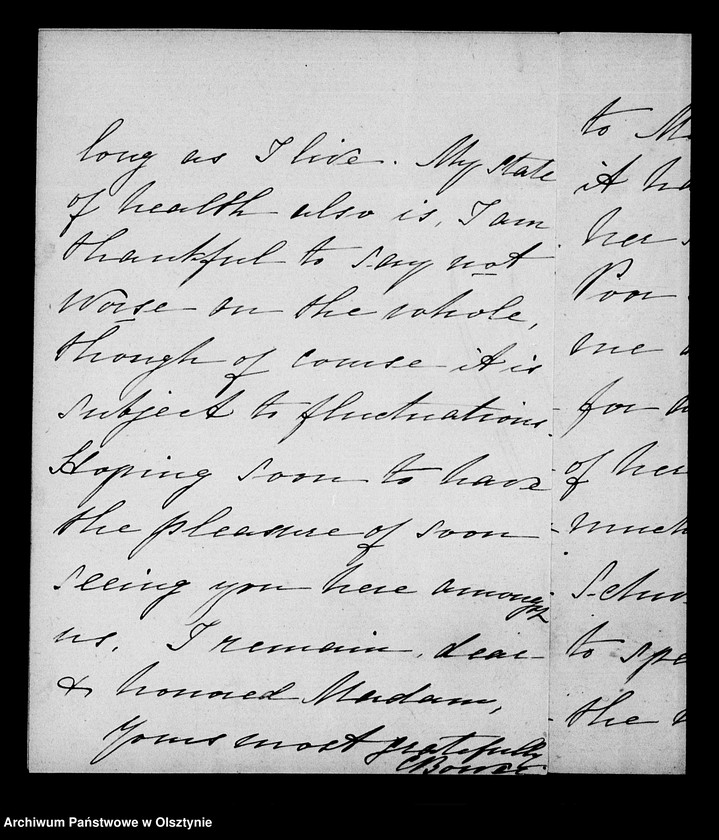 long as I live. My state
of health also is, I am
thankful to say not
worse on the whole,
though of course it is
subject to fluctuations.
Hoping soon to have
the pleasure of soon
seeing you here amongst
us. I remain, dear
& honored Madam,
Yours most gratefully
to
it
her
Poor
me
for
of her
much
to
the
Archiwum Państwowe w Olsztynie